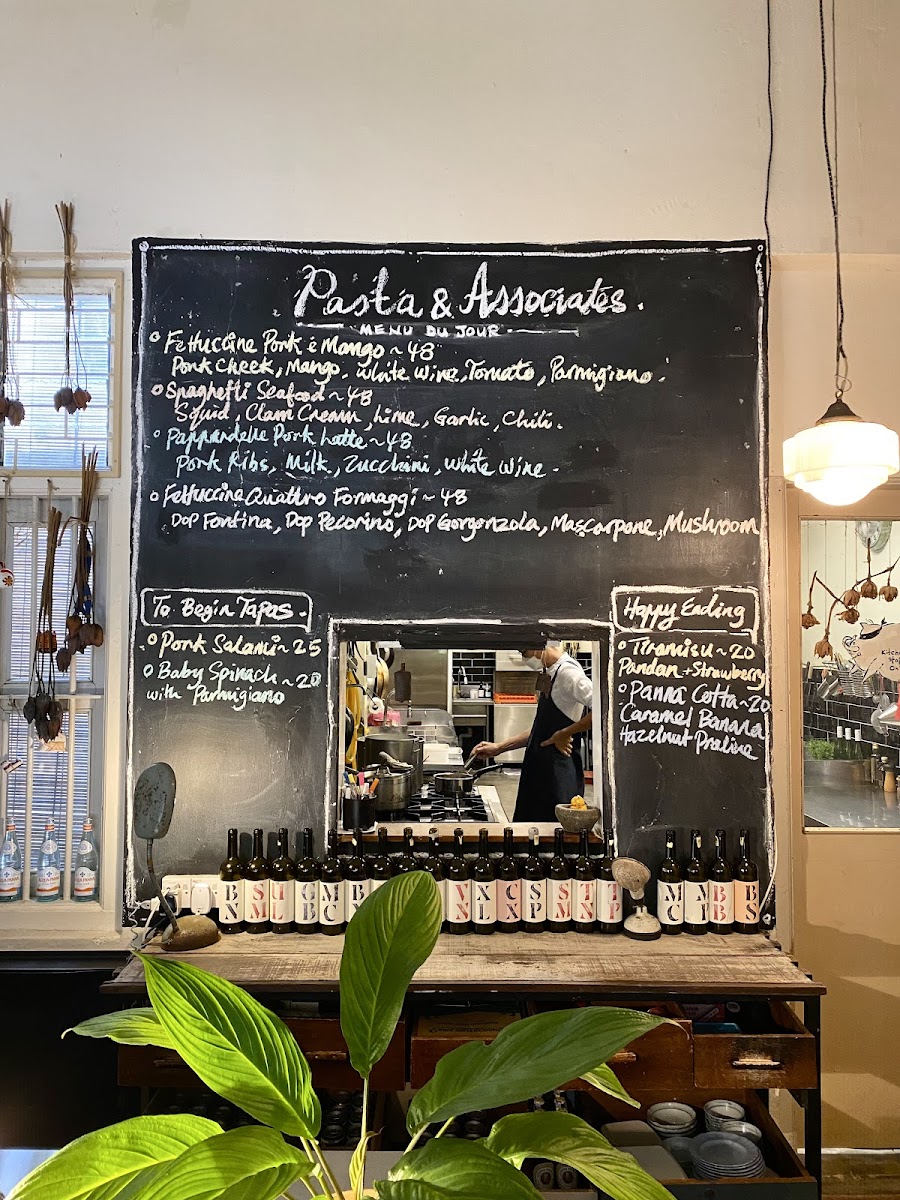 Pasta & Associates.
MENU DU JOUR
Fettuccine Pork e Mango ~ 48
Pork Cheek, Mango, White Wine, Tomato, Parmigiano.
Spaghetti Seafood ~ 48
Squid, Clam Cream, Lime, Garlic, Chili.
Pappardelle Pork Latte ~ 48
Pork Ribs, Milk, Zucchini, White Wine.
Fettuccine Quattro Formaggi ~ 48
DOP Fontina, Dop Pecorino, DOP Gorgonzola, Mascarpone, Mushroom
To Begin Tapas.
Pork Salami ~ 25
Baby Spinach ~ 20
with Parmigiano
Happy Ending
Tiramisu ~ 20
Pandan + Strawberry
Panna Cotta ~ 20
Caramel Banana
Hazelnut Praline
BN
SML
UL
GBC
VN
XL
CXP
SP
SM
TN
MC
BB
BS